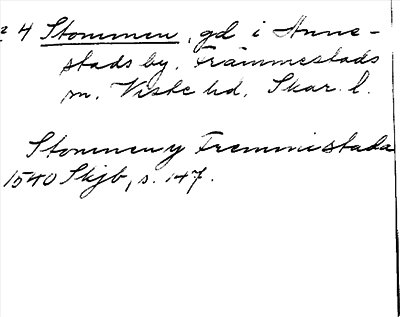 4 Stommen, gd i Anne-
stads by, Främmestads
sn. Viste hd. Skar. l.
Stommen y Fremmestada
1540 Skjb, s. 147.